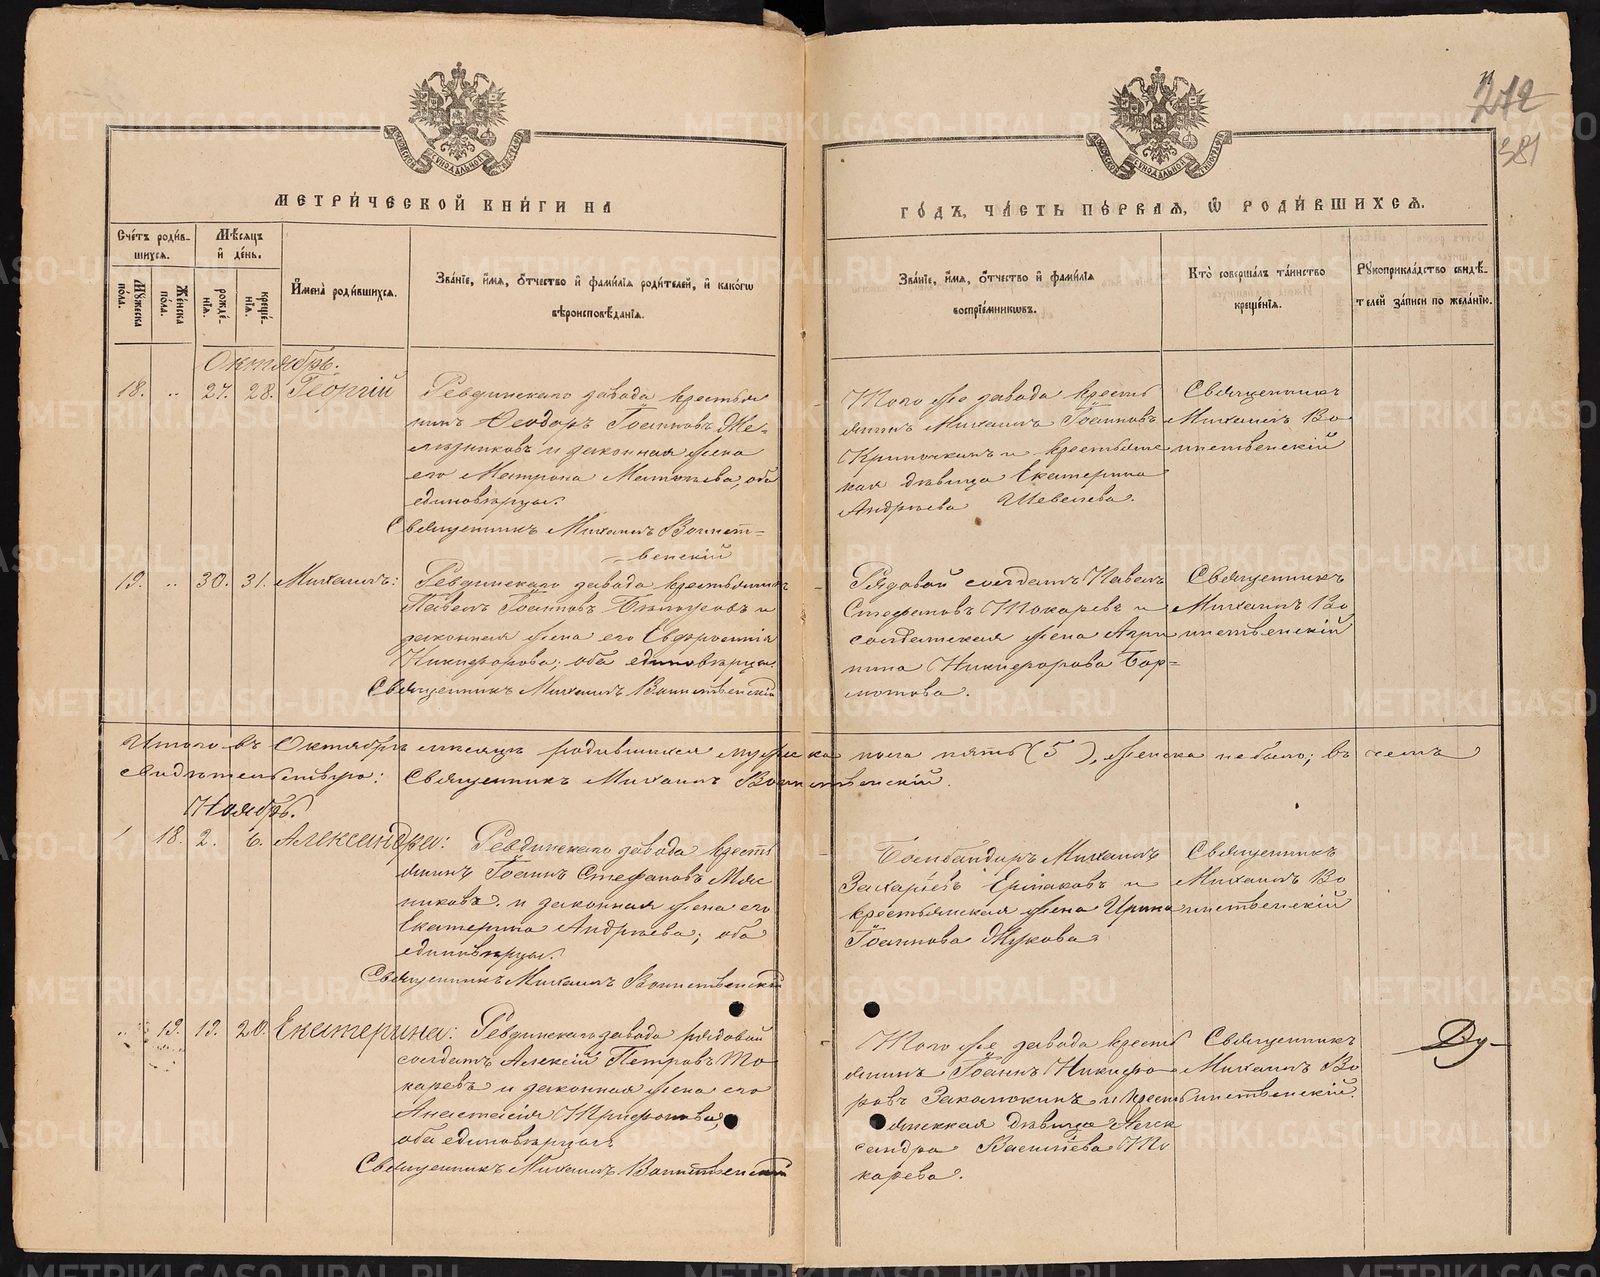 272
381
МОСКОВСКОЙ СѴНОДАЛЬНОЙ ТИПОГРАФІИ
МЕТРИ́ЧЕСКОЙ КНИ́ГИ НА
Сче́тъ роди́в-
шихся.
Мѣ́сяцъ
и҆ де́нь.
Му́жеска
по́ла.
Же́нска
по́ла.
рожде́-
нія.
креще́-
нія.
И҆мена̀ роди́вшихся.
Зва́ніе, и҆́мя, ѻ҆́тчество и҆ фами́лія роди́телей, и҆ како́гѡ
вѣроисповѣ́данія.
Октябрь.
18. „ 27. 28. Георгій
Ревдинскаго завода крестья
нинъ Ѳеодоръ Іоанновъ Ме-
льниковъ и законная жена
его Матрона Матѳіева, оба
единовѣрцы.
Священникъ Михаилъ Воинст-
венскій
19. „ 30. 31. Михаилъ:
Ревдинскаго завода крестьянинъ
Павелъ Іоанновъ Бѣлоусовъ и
законная жена его Евфросинія
Никифорова; оба единовѣрцы.
Священникъ Михаилъ Воинственскій
Итого въ Октябрѣ мѣсяцѣ родившихся мужеска пола пять (5), женска не было; въ чемъ
свидѣтельствую: Священникъ Михаилъ Воинственскій.
Ноябрь.
18. 2. 6. Александра:
Ревдинскаго завода кресть
янинъ Іоаннъ Стефановъ Мяс
никовъ и законная жена его
Екатерина Андреева; оба
единовѣрцы.
Священникъ Михаилъ Воинственскій
„ 19. 19. 20. Екатерина:
Ревдинскаго завода рядовой
солдатъ Алексій Петровъ То
каревъ и законная жена его
Анастасія Трифонова,
оба единовѣрцы.
Священникъ Михаилъ Воинственскій
МОСКОВСКОЙ СѴНОДАЛЬНОЙ ТИПОГРАФІИ
ГО́ДЪ, ЧА́СТЬ ПЕ́РВАЯ, Ѡ҆ РОДИ́ВШИХСЯ.
Зва́ніе, и҆́мя, ѻ҆́тчество и҆ фами́лія
воспріе́мникѡвъ.
Кто̀ соверша́лъ та́инство
креще́нія.
Рꙋкоприкла́дство свидѣ́-
телей за́писи по жела́нію.
Того же завода кресть
янинъ Михаилъ Іоанновъ
Крючкинъ и крестьянс
кая дѣвица Екатерина
Андреева Шевелева.
Священникъ
Михаилъ Во
инственскій
Рядовой солдатъ Павелъ
Стефановъ Токаревъ и
солдатская жена Агри
пина Никифорова Бор-
мотова.
Священникъ
Михаилъ Во
инственскій
Бомбандиръ Михаилъ
Захаріевъ Ермаковъ и
крестьянская жена Ирина
Іоаннова Жукова.
Священникъ
Михаилъ Во
инственскій
Того же завода кресть
янинъ Іоаннъ Никифо
ровъ Закалюкинъ и кресть
янская дѣвица Алек
сандра Васильева То
карева.
Священникъ
Михаилъ Во
инственскій.
METRIKI.GASO-URAL.RU